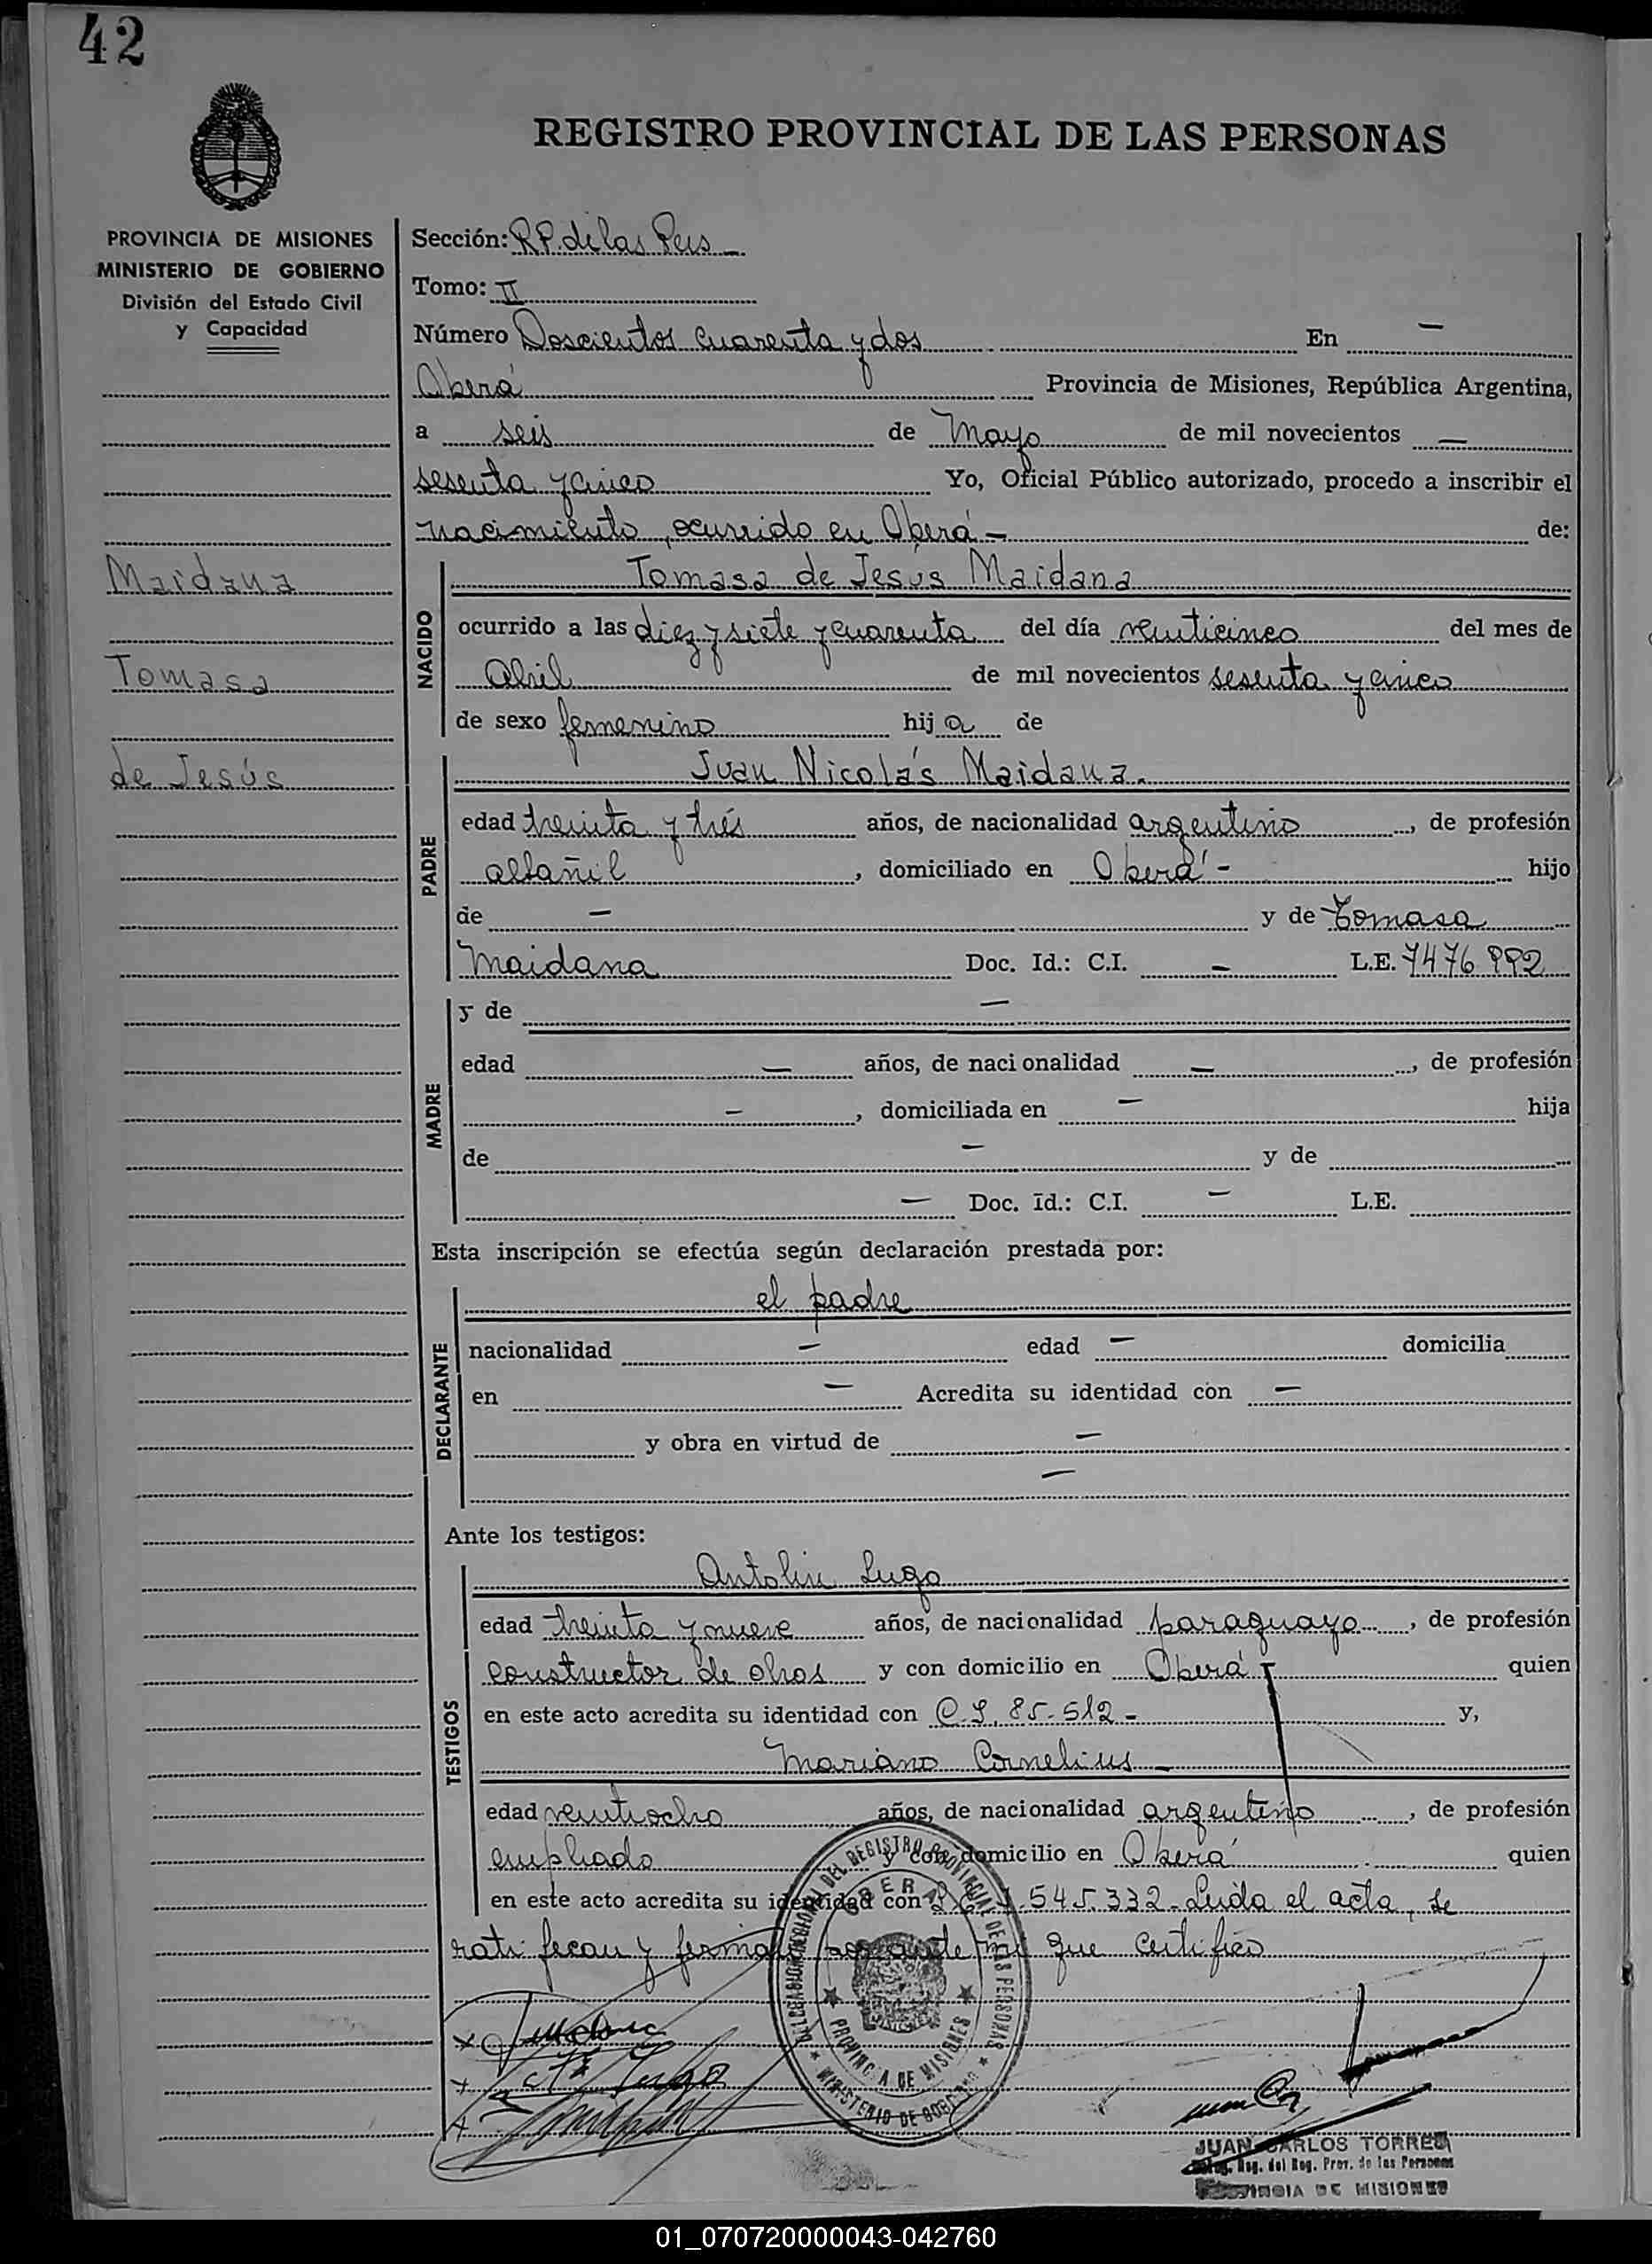 42
REGISTRO PROVINCIAL DE LAS PERSONAS
PROVINCIA DE MISIONES
MINISTERIO DE GOBIERNO
División del Estado Civil
y Capacidad
Maidana
Tomasa
de Jesús
Sección: R.P. de las Pers
Tomo: II
Número Doscientos cuarenta y dos En —
Oberá Provincia de Misiones, República Argentina,
a seis de Mayo de mil novecientos —
sesenta y cinco Yo, Oficial Público autorizado, procedo a inscribir el
nacimiento, ocurrido en Oberá - de:
NACIDO
Tomasa de Jesús Maidana
ocurrido a las diez y siete y cuarenta del día veinticinco del mes de
Abril de mil novecientos sesenta y cinco
de sexo femenino hija de
PADRE
Juan Nicolás Maidana.
edad treinta y trés años, de nacionalidad argentino, de profesión
albañil, domiciliado en Oberá - hijo
de — y de Tomasa
Maidana Doc. Id.: C.I. — L.E. 7476.992
MADRE
y de —
edad — años, de nacionalidad —, de profesión
—, domiciliada en — hija
de — y de
— Doc. Id.: C.I. — L.E.
Esta inscripción se efectúa según declaración prestada por:
DECLARANTE
el padre
nacionalidad — edad — domicilia
en — Acredita su identidad con —
y obra en virtud de —
—
Ante los testigos:
TESTIGOS
Antolin Lugo
edad treinta y nueve años, de nacionalidad paraguayo, de profesión
constructor de obras y con domicilio en Oberá - quien
en este acto acredita su identidad con C.I. 85.512 - y,
Mariano Cornelius -
edad veintiocho años, de nacionalidad argentino, de profesión
empleado y con domicilio en Oberá quien
en este acto acredita su identidad con 545.332 - Leida el acta, se
ratifecan y firman por ante mi que certifico
DEL REGISTRO PROVINCIAL DE LAS PERSONAS
OBERA
PROVINCIA DE MISIONES
MINISTERIO DE GOBIERNO
JUAN CARLOS TORRES
Reg. del Reg. Prov. de las Personas
PROVINCIA DE MISIONES
01_070720000043-042760